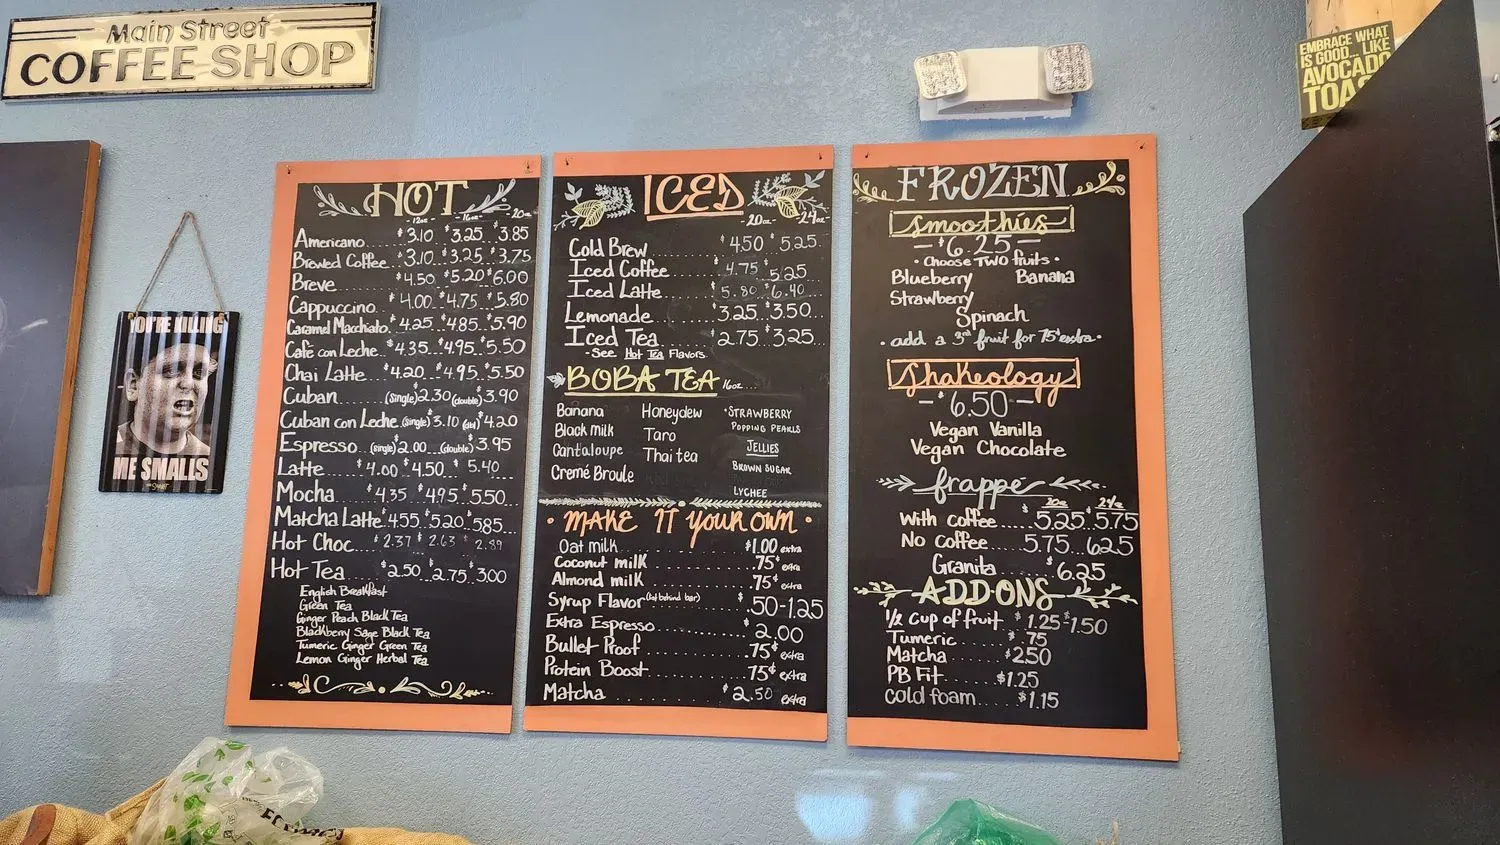 Main Street
COFFEE SHOP
EMBRACE WHAT
IS GOOD... LIKE
AVOCADO
TOAS
YOU'RE KILLING
ME SMALLS
HOT
12oz 16oz 20oz
Americano $3.10 $3.25 $3.85
Brewed Coffee $3.10 $3.25 $3.75
Breve $4.50 $5.20 $6.00
Cappuccino $4.00 $4.75 $5.80
Caramel Macchiato $4.25 $4.85 $5.90
Cafè con Leche $4.35 $4.95 $5.50
Chai Latte $4.20 $4.95 $5.50
Cuban (single) $2.30 (double) $3.90
Cuban con Leche (single) $3.10 (dbl) $4.20
Espresso (single) $2.00 (double) $3.95
Latte $4.00 $4.50 $5.40
Mocha $4.35 $4.95 $5.50
Matcha Latte $4.55 $5.20 $5.85
Hot Choc $2.37 $2.63 $2.89
Hot Tea $2.50 $2.75 $3.00
English Breakfast
Green Tea
Ginger Peach Black Tea
Blackberry Sage Black Tea
Tumeric Ginger Green Tea
Lemon Ginger Herbal Tea
ICED
20oz 24oz
Cold Brew $4.50 $5.25
Iced Coffee $4.75 $5.25
Iced Latte $5.80 $6.40
Lemonade $3.25 $3.50
Iced Tea $2.75 $3.25
- See Hot Tea Flavors
BOBA TEA 16oz
Banana
Black milk
Cantaloupe
Cremé Broule
Honeydew
Taro
Thai tea
STRAWBERRY
POPPING PEARLS
JELLIES
BROWN SUGAR
LYCHEE
MAKE IT YOUR OWN
Oat milk $1.00 extra
Coconut milk .75¢ extra
Almond milk .75¢ extra
Syrup Flavor (list behind bar) $.50-1.25
Extra Espresso $2.00
Bullet Proof .75¢ extra
Protein Boost 75¢ extra
Matcha $2.50 extra
FROZEN
Smoothies
- $6.25 -
• Choose TWO fruits •
Blueberry Banana
Strawberry
Spinach
• add a 3rd fruit for 75¢ extra •
Shakeology
- $6.50 -
Vegan Vanilla
Vegan Chocolate
frappe
20oz 24oz
With coffee $5.25 $5.75
No coffee 5.75 6.25
Granita $6.25
ADD-ONS
1/2 cup of fruit $1.25 $1.50
Tumeric $.75
Matcha $2.50
PB Fit $1.25
cold foam $1.15